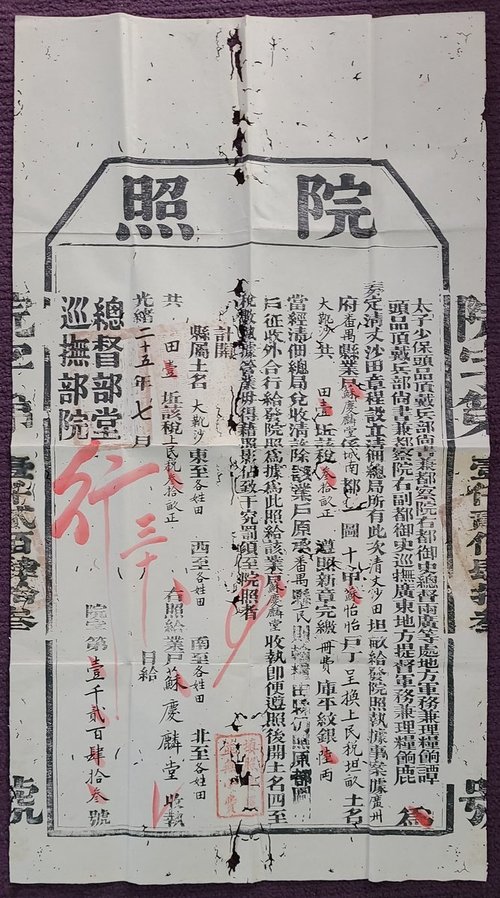 院照
太子少保頭品頂戴兵部尚書兼都察院右都御史總督兩廣等處地方軍務兼理糧餉譚
頭品頂戴兵部尚書兼都察院右副都御史巡撫廣東地方提督軍務兼理糧餉鹿
為
奏定清丈沙田章程設立清佃總局所有此次清丈沙田坦畝給發院照執據事案據廣州
府番禺縣業戶蘇慶麟堂係城南都 圖十甲蘇怡怡戶丁呈換上民稅坦畝土名
大靴沙共 田壹坵該稅上民稅叁拾畝正 遵照新章完繳冊費庫平紋銀陸兩
當經清佃總局兌收清該除該業戶原承番禺縣民
戶征收外合行給發院照為據為此照給該業戶蘇慶麟堂收執即便遵照後開土名四至
稅數執據管業毋得藉照影佔致干究罰須至院照者
計開
縣屬土名大靴沙東至各姓田 西至各姓田 南至各姓田 北至各姓田
共 田壹坵該稅上民稅叁拾畝正
右照給業戶蘇慶麟堂收執
光緒二十五年七月 三十 日給
總督部堂
巡撫部院
行
院字第壹千貳百肆拾叁號
院字第壹仟貳佰肆拾叁號
院字第壹仟貳佰肆拾叁號